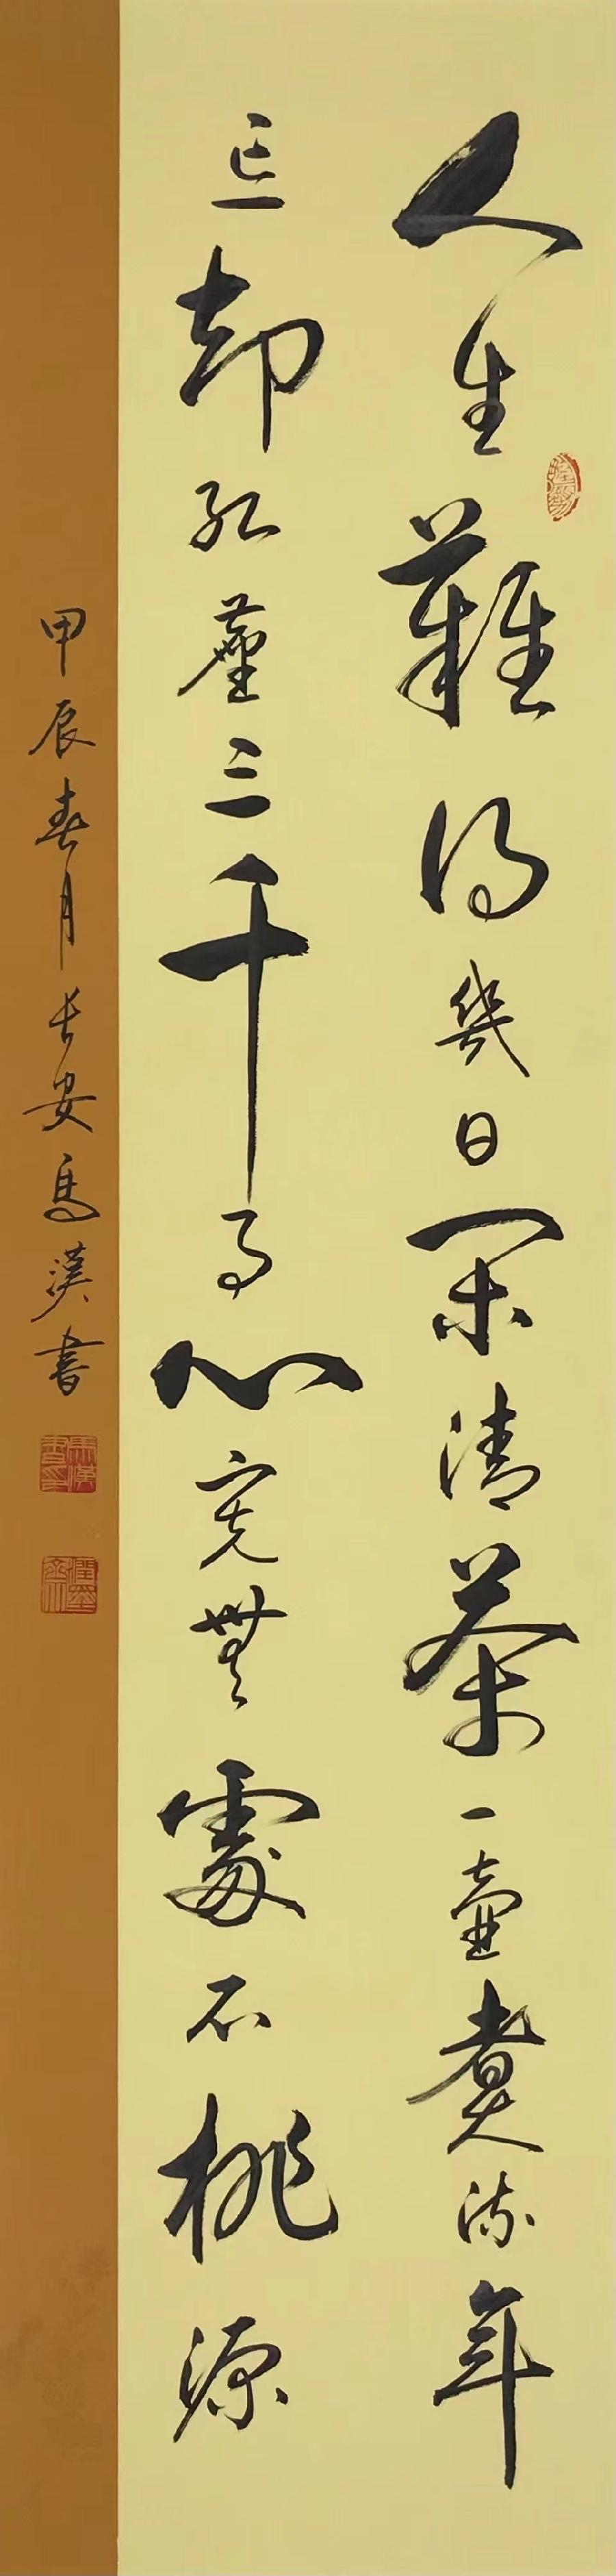 人生難得幾日閑清茶一壺煮流年
忘却紅塵三千事心寬無處不桃源
甲辰春月長安馬漢書